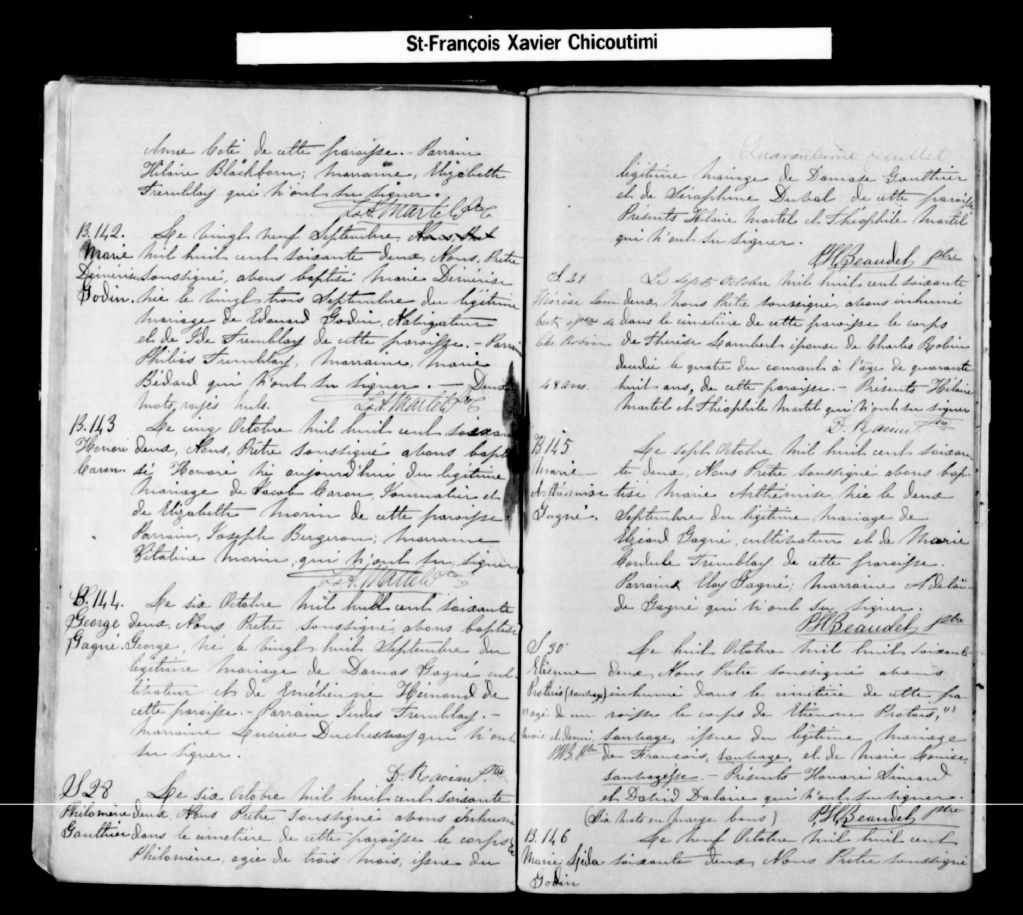 St-François Xavier Chicoutimi
Anne Coté de cette paroisse. - Parrain
Hilaire Blackborn; marraine, Elizabeth
Tremblay qui n'ont su signer.
Martel Ptre
B. 142. Le vingt neuf Septembre
Marie mil huit cent soixante deux, Nous, Prêtre
Démerise soussigné, avons baptisé Marie Démérise
Godin. née le vingt trois Septembre du légitime
mariage de Edouard Godin, Navigateur
et de Ide Tremblay de cette paroisse. - Parrain
Philéas Tremblay, marraine, Marie
Bédard qui n'ont su signer. - Deux
mots rayés nuls. Martel Ptre
B. 143 Le cinq Octobre mil huit cent soixan
Honoré deux, Nous, Prêtre soussigné avons bapti
Caron. sé Honoré né aujourd'hui du légitime
mariage de Jacob Caron, Journalier et
de Elizabeth Morin de cette paroisse.
Parrain, Joseph Bergeron; marraine
Vitaline Morin, qui n'ont su signer
Martel Ptre
B. 144. Le six Octobre mil huit cent soixante
George deux, Nous Prêtre soussigné, avons baptisé
Gagné. George, né le vingt huit Septembre du
légitime mariage de Damas Gagné cul
tivateur et de Emérienne Hemond de
cette paroisse. - Parrain Jules Tremblay. -
marraine Lucrèce Duchesnay qui n'ont
su signer.
D. Racine Ptre
S 28 Le six Octobre mil huit cent soixante
Philomène deux, Nous Prêtre soussigné avons inhumé
Gaulthier dans le cimetière de cette paroisse le corps de
Philomène, agée de trois mois, issue du
Quarantième feuillet
légitime mariage de Damase Gaulthier
et de Séraphine Dubal de cette paroisse
Présents Hilaire Martel et Théophile Martel
qui n'ont su signer.
Beaudet ptre
S 29 Le sept Octobre mil huit cent soixante
Thérèse Lam deux, Nous Prêtre soussigné, avons inhumé
bert épse de dans le cimetière de cette paroisse le corps
Chs Robin de Thérèse Lambert épouse de Charles Robin
décédée le quatre du courant à l'âge de quarante
48 ans. huit ans, de cette paroisse. - Présents Hilaire
Martel et Théophile Martel qui n'ont su signer
D. Racine Ptre
B 145 Le sept Octobre mil huit cent soixan
Marie te deux, Nous Prêtre soussigné avons bap
Arthémise tisé Marie Arthémise, née le deux
Gagné. Septembre du légitime mariage de
Elzéard Gagné, cultivateur et de Marie
Cordule Tremblay de cette paroisse.
Parrain Eloy Gagné; marraine Adelaï
de Gagné qui n'ont su signer.
Beaudet ptre
S 30 Le huit Octobre mil huit soixante
Etienne deux, Nous Prêtre soussigné avons
Protais (sauvage) inhumé dans le cimetière de cette pa
agé de un roisse le corps de Etienne Protais,
mois et demi. sauvage, issu du légitime mariage
de François, sauvage, et de Marie Louise,
sauvagesse. - Présents Honoré Simard
et David Dalaire qui n'ont su signer.
(Six mots en marge bons) Beaudet ptre
B. 146 Le neuf Octobre mil huit cent
Marie soixante deux, Nous Prêtre soussigné
Godin